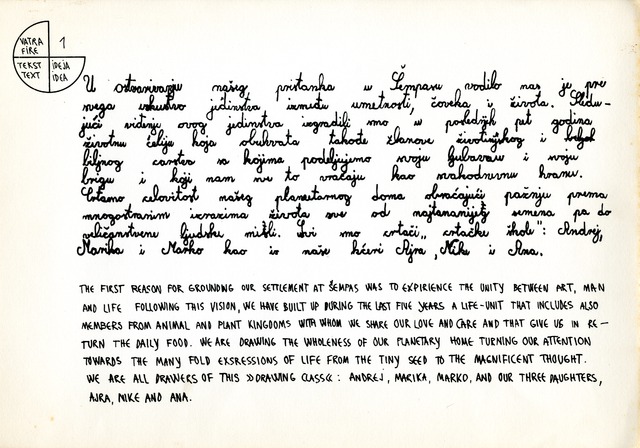 VATRA
FIRE
1
TEKST
TEXT
IDEJA
IDEA
U ostvarivanju našeg pristanka u Šempasu vodilo nas je pre
svega iskustvo jedinstva između umetnosti, čoveka i života. Sledu-
jući viđenju ovog jedinstva izgradili smo u poslednjih pet godina
životnu ćeliju koja obuhvata takođe članove životinjskog i
biljnog carstva sa kojima podeljujemo svoju ljubavlju i svoju
brigu i koji nam sve to vraćaju kao svakodnevnu hranu.
Crtamo celovitost našeg planetarnog doma obraćajući pažnju prema
mnogostranim izrazima života sve od najtananijeg semena pa do
veličanstvene ljudske misli. Svi smo crtači „ crtačke škole": Andrej,
Marika i Marko kao i naše kćeri Ajra, Nike i Ana.
THE FIRST REASON FOR GROUNDING OUR SETTLEMENT AT ŠEMPAS WAS TO EXPIRIENCE THE UNITY BETWEEN ART, MAN
AND LIFE FOLLOWING THIS VISION, WE HAVE BUILT UP DURING THE LAST FIVE YEARS A LIFE-UNIT THAT INCLUDES ALSO
MEMBERS FROM ANIMAL AND PLANT KINGDOMS WITH WHOM WE SHARE OUR LOVE AND CARE AND THAT GIVE US IN RE-
TURN THE DAILY FOOD. WE ARE DRAWING THE WHOLENESS OF OUR PLANETARY HOME TURNING OUR ATTENTION
TOWARDS THE MANY FOLD EXSRESSIONS OF LIFE FROM THE TINY SEED TO THE MAGNIFICENT THOUGHT.
WE ARE ALL DRAWERS OF THIS »DRAWING CLASS«: ANDREJ, MARIKA, MARKO, AND OUR THREE DAUGHTERS,
AJRA, NIKE AND ANA.